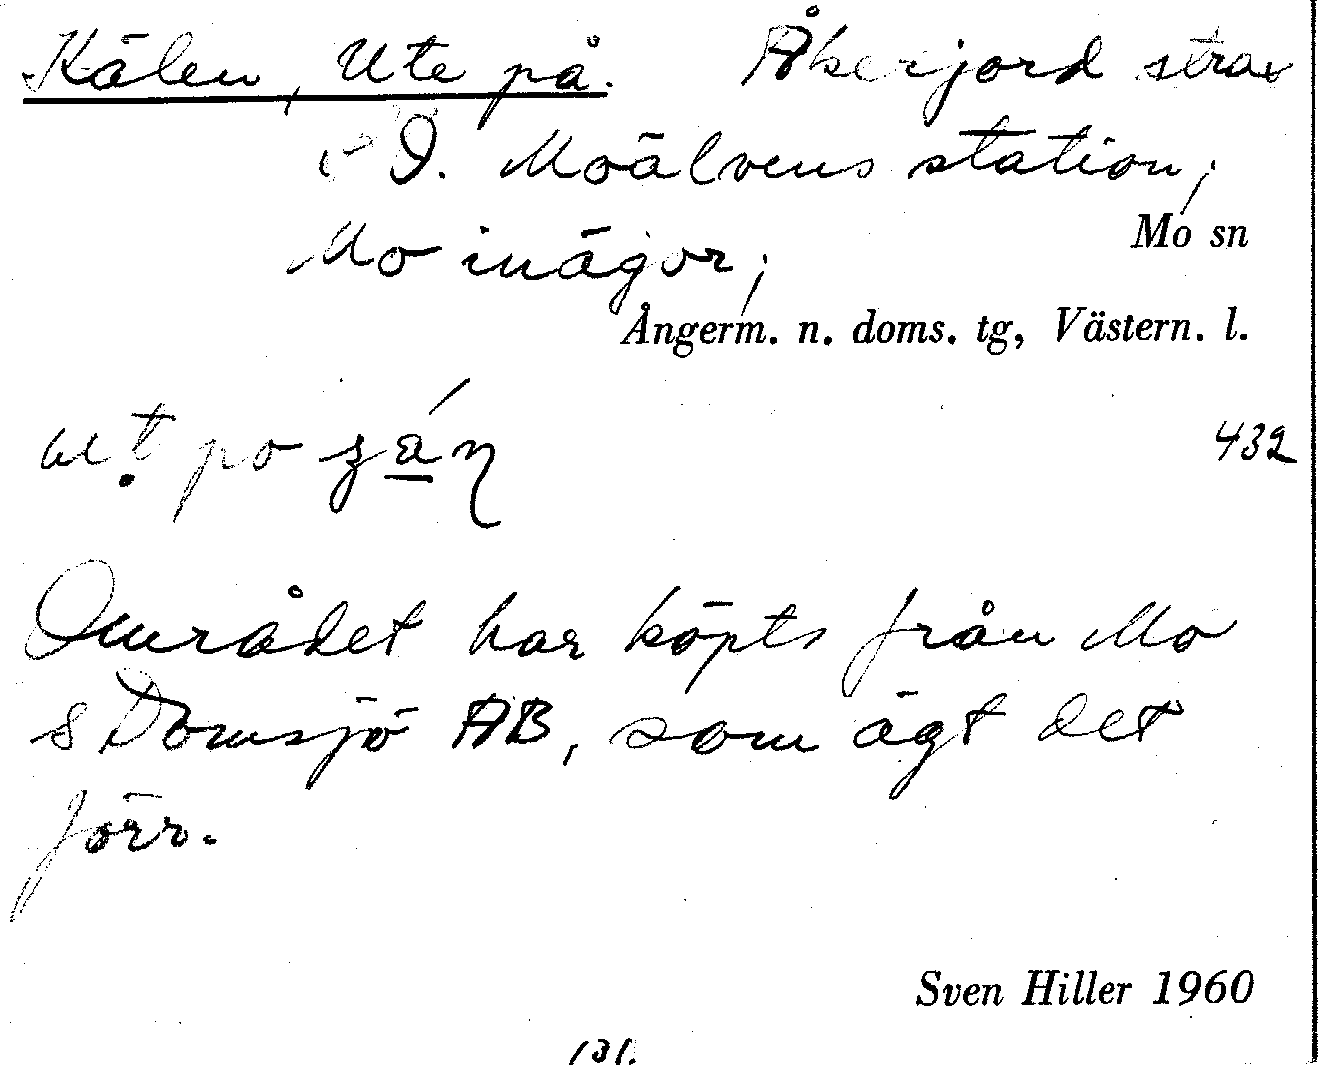 Kälen, Ute på. Åkerjord strax
Ö. Moälvens station,
Mo sn
Mo inägor,
Ångerm. n. doms. tg, Västern. l.
432
Området har köpts från Mo
& Domsjö AB, som ägt det
förr.
Sven Hiller 1960
131.